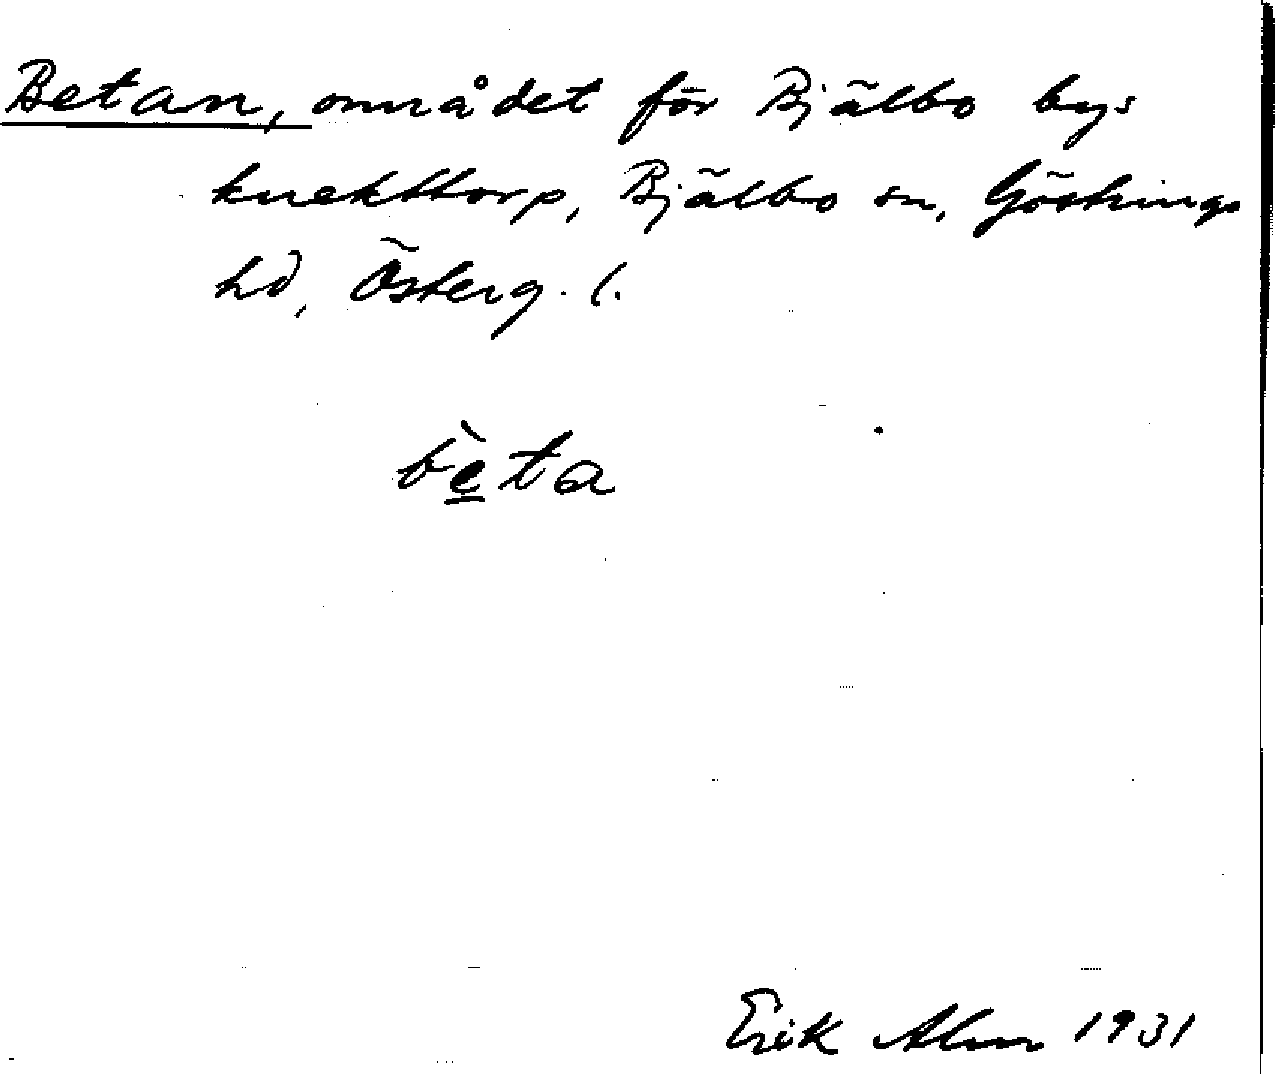 Betan, området för Bjälbo bys
knekttorp, Bjälbo sn, Göstrings
hd, Österg. l.
bèta
Erik Alm 1931